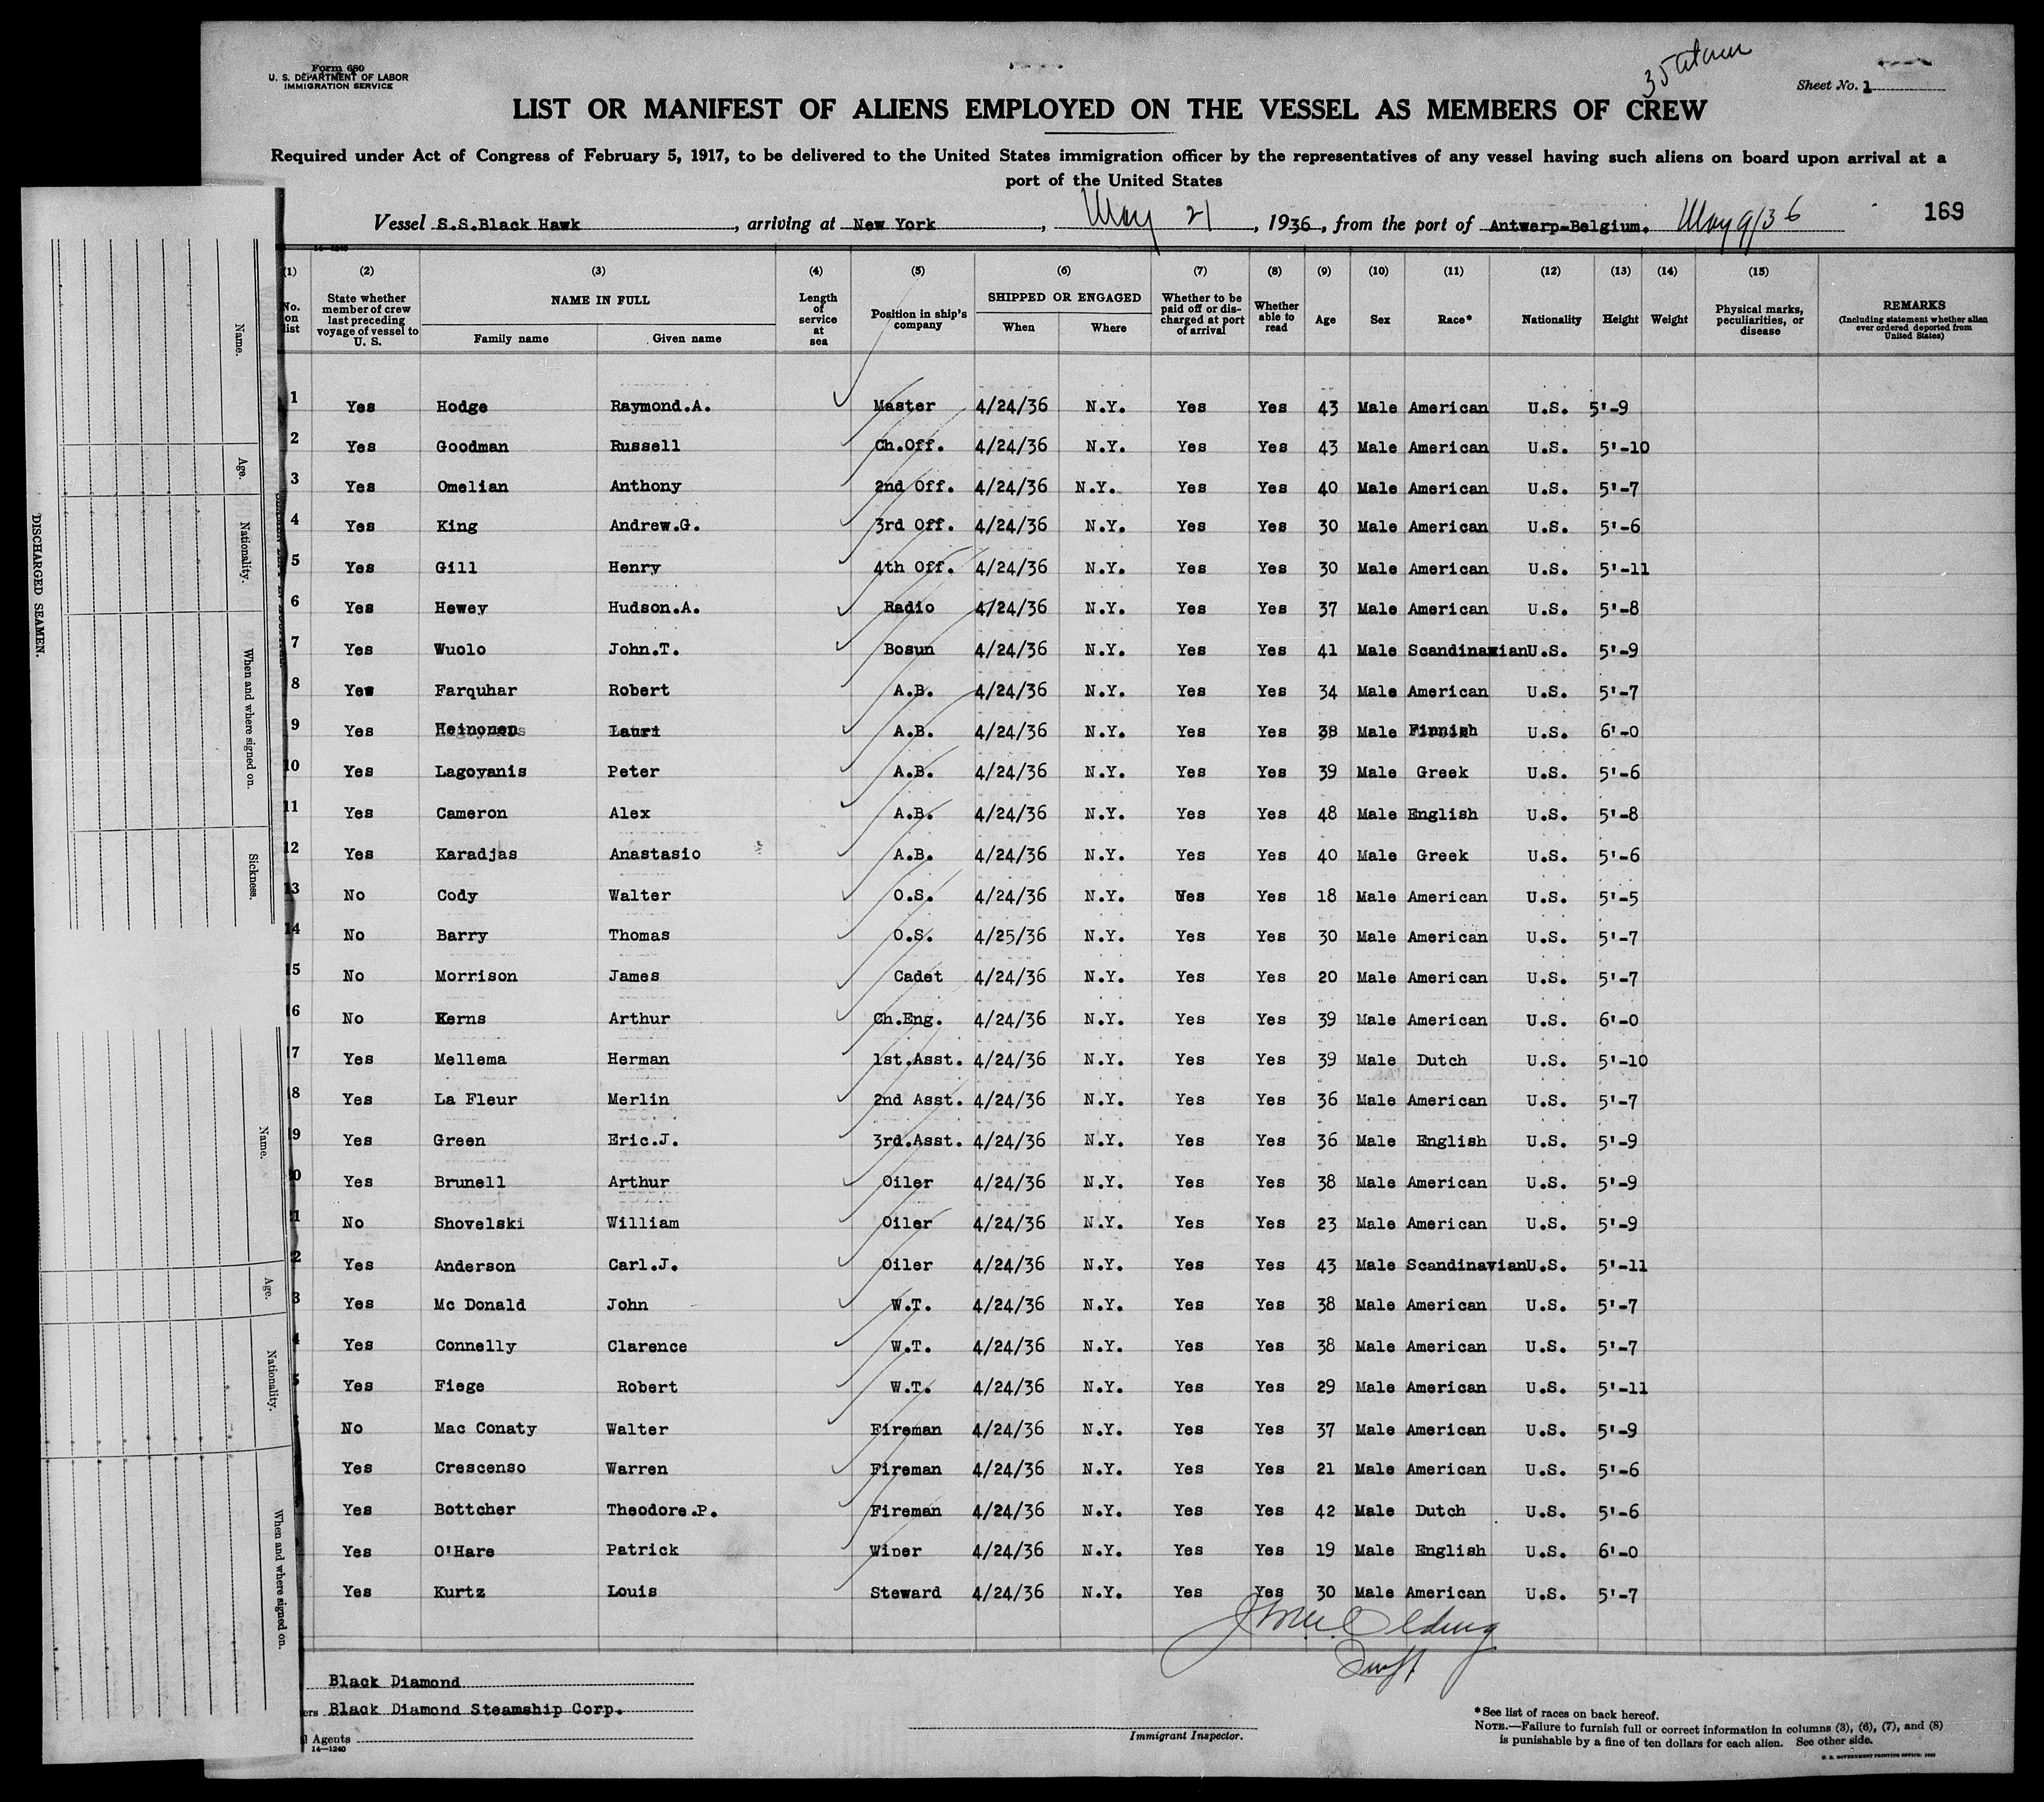 Form 680
U. S. DEPARTMENT OF LABOR
IMMIGRATION SERVICE
Sheet No. 1
LIST OR MANIFEST OF ALIENS EMPLOYED ON THE VESSEL AS MEMBERS OF CREW
Required under Act of Congress of February 5, 1917, to be delivered to the United States immigration officer by the representatives of any vessel having such aliens on board upon arrival at a
port of the United States
169
Vessel S.S.Black Hawk, arriving at New York, May 21, 1936, from the port of Antwerp-Belgium. May 9/36
(1) (2) (3) (4) (5) (6) (7) (8) (9) (10) (11) (12) (13) (14) (15)
No. on list State whether member of crew last preceding voyage of vessel to U. S. NAME IN FULL Family name Given name Length of service at sea Position in ship's company SHIPPED OR ENGAGED When Where Whether to be paid off or discharged at port of arrival Whether able to read Age Sex Race* Nationality Height Weight Physical marks, peculiarities, or disease REMARKS (Including statement whether alien ever ordered deported from United States)
1 Yes Hodge Raymond.A. Master 4/24/36 N.Y. Yes Yes 43 Male American U.S. 5'-9
2 Yes Goodman Russell Ch.Off. 4/24/36 N.Y. Yes Yes 43 Male American U.S. 5'-10
3 Yes Omelian Anthony 2nd Off. 4/24/36 N.Y. Yes Yes 40 Male American U.S. 5'-7
4 Yes King Andrew.G. 3rd Off. 4/24/36 N.Y. Yes Yes 30 Male American U.S. 5'-6
5 Yes Gill Henry 4th Off. 4/24/36 N.Y. Yes Yes 30 Male American U.S. 5'-11
6 Yes Hewey Hudson.A. Radio 4/24/36 N.Y. Yes Yes 37 Male American U.S. 5'-8
7 Yes Wuolo John.T. Bosun 4/24/36 N.Y. Yes Yes 41 Male Scandinavian U.S. 5'-9
8 Yes Farquhar Robert A.B. 4/24/36 N.Y. Yes Yes 34 Male American U.S. 5'-7
9 Yes Heinonen Lauri A.B. 4/24/36 N.Y. Yes Yes 38 Male Finnish U.S. 6'-0
10 Yes Lagoyanis Peter A.B. 4/24/36 N.Y. Yes Yes 39 Male Greek U.S. 5'-6
11 Yes Cameron Alex A.B. 4/24/36 N.Y. Yes Yes 48 Male English U.S. 5'-8
12 Yes Karadjas Anastasio A.B. 4/24/36 N.Y. Yes Yes 40 Male Greek U.S. 5'-6
13 No Cody Walter O.S. 4/24/36 N.Y. Yes Yes 18 Male American U.S. 5'-5
14 No Barry Thomas O.S. 4/25/36 N.Y. Yes Yes 30 Male American U.S. 5'-7
15 No Morrison James Cadet 4/24/36 N.Y. Yes Yes 20 Male American U.S. 5'-7
6 No Kerns Arthur Ch.Eng. 4/24/36 N.Y. Yes Yes 39 Male American U.S. 6'-0
7 Yes Mellema Herman 1st.Asst. 4/24/36 N.Y. Yes Yes 39 Male Dutch U.S. 5'-10
8 Yes La Fleur Merlin 2nd Asst. 4/24/36 N.Y. Yes Yes 36 Male American U.S. 5'-7
9 Yes Green Eric.J. 3rd.Asst. 4/24/36 N.Y. Yes Yes 36 Male English U.S. 5'-9
0 Yes Brunell Arthur Oiler 4/24/36 N.Y. Yes Yes 38 Male American U.S. 5'-9
1 No Shovelski William Oiler 4/24/36 N.Y. Yes Yes 23 Male American U.S. 5'-9
2 Yes Anderson Carl.J. Oiler 4/24/36 N.Y. Yes Yes 43 Male Scandinavian U.S. 5'-11
3 Yes Mc Donald John W.T. 4/24/36 N.Y. Yes Yes 38 Male American U.S. 5'-7
4 Yes Connelly Clarence W.T. 4/24/36 N.Y. Yes Yes 38 Male American U.S. 5'-7
5 Yes Fiege Robert W.T. 4/24/36 N.Y. Yes Yes 29 Male American U.S. 5'-11
No Mac Conaty Walter Fireman 4/24/36 N.Y. Yes Yes 37 Male American U.S. 5'-9
Yes Crescenso Warren Fireman 4/24/36 N.Y. Yes Yes 21 Male American U.S. 5'-6
Yes Bottcher Theodore.P. Fireman 4/24/36 N.Y. Yes Yes 42 Male Dutch U.S. 5'-6
Yes O'Hare Patrick Wiper 4/24/36 N.Y. Yes Yes 19 Male English U.S. 6'-0
Yes Kurtz Louis Steward 4/24/36 N.Y. Yes Yes 30 Male American U.S. 5'-7
Black Diamond
ers Black Diamond Steamship Corp.
Agents
14—1240
Immigrant Inspector.
*See list of races on back hereof.
NOTE.—Failure to furnish full or correct information in columns (3), (6), (7), and (8)
is punishable by a fine of ten dollars for each alien. See other side.
U. S. GOVERNMENT PRINTING OFFICE
DISCHARGED SEAMEN.
Name.
Age.
Nationality.
When and where signed on.
Sickness.
Name.
Age.
Nationality.
When and where signed on.